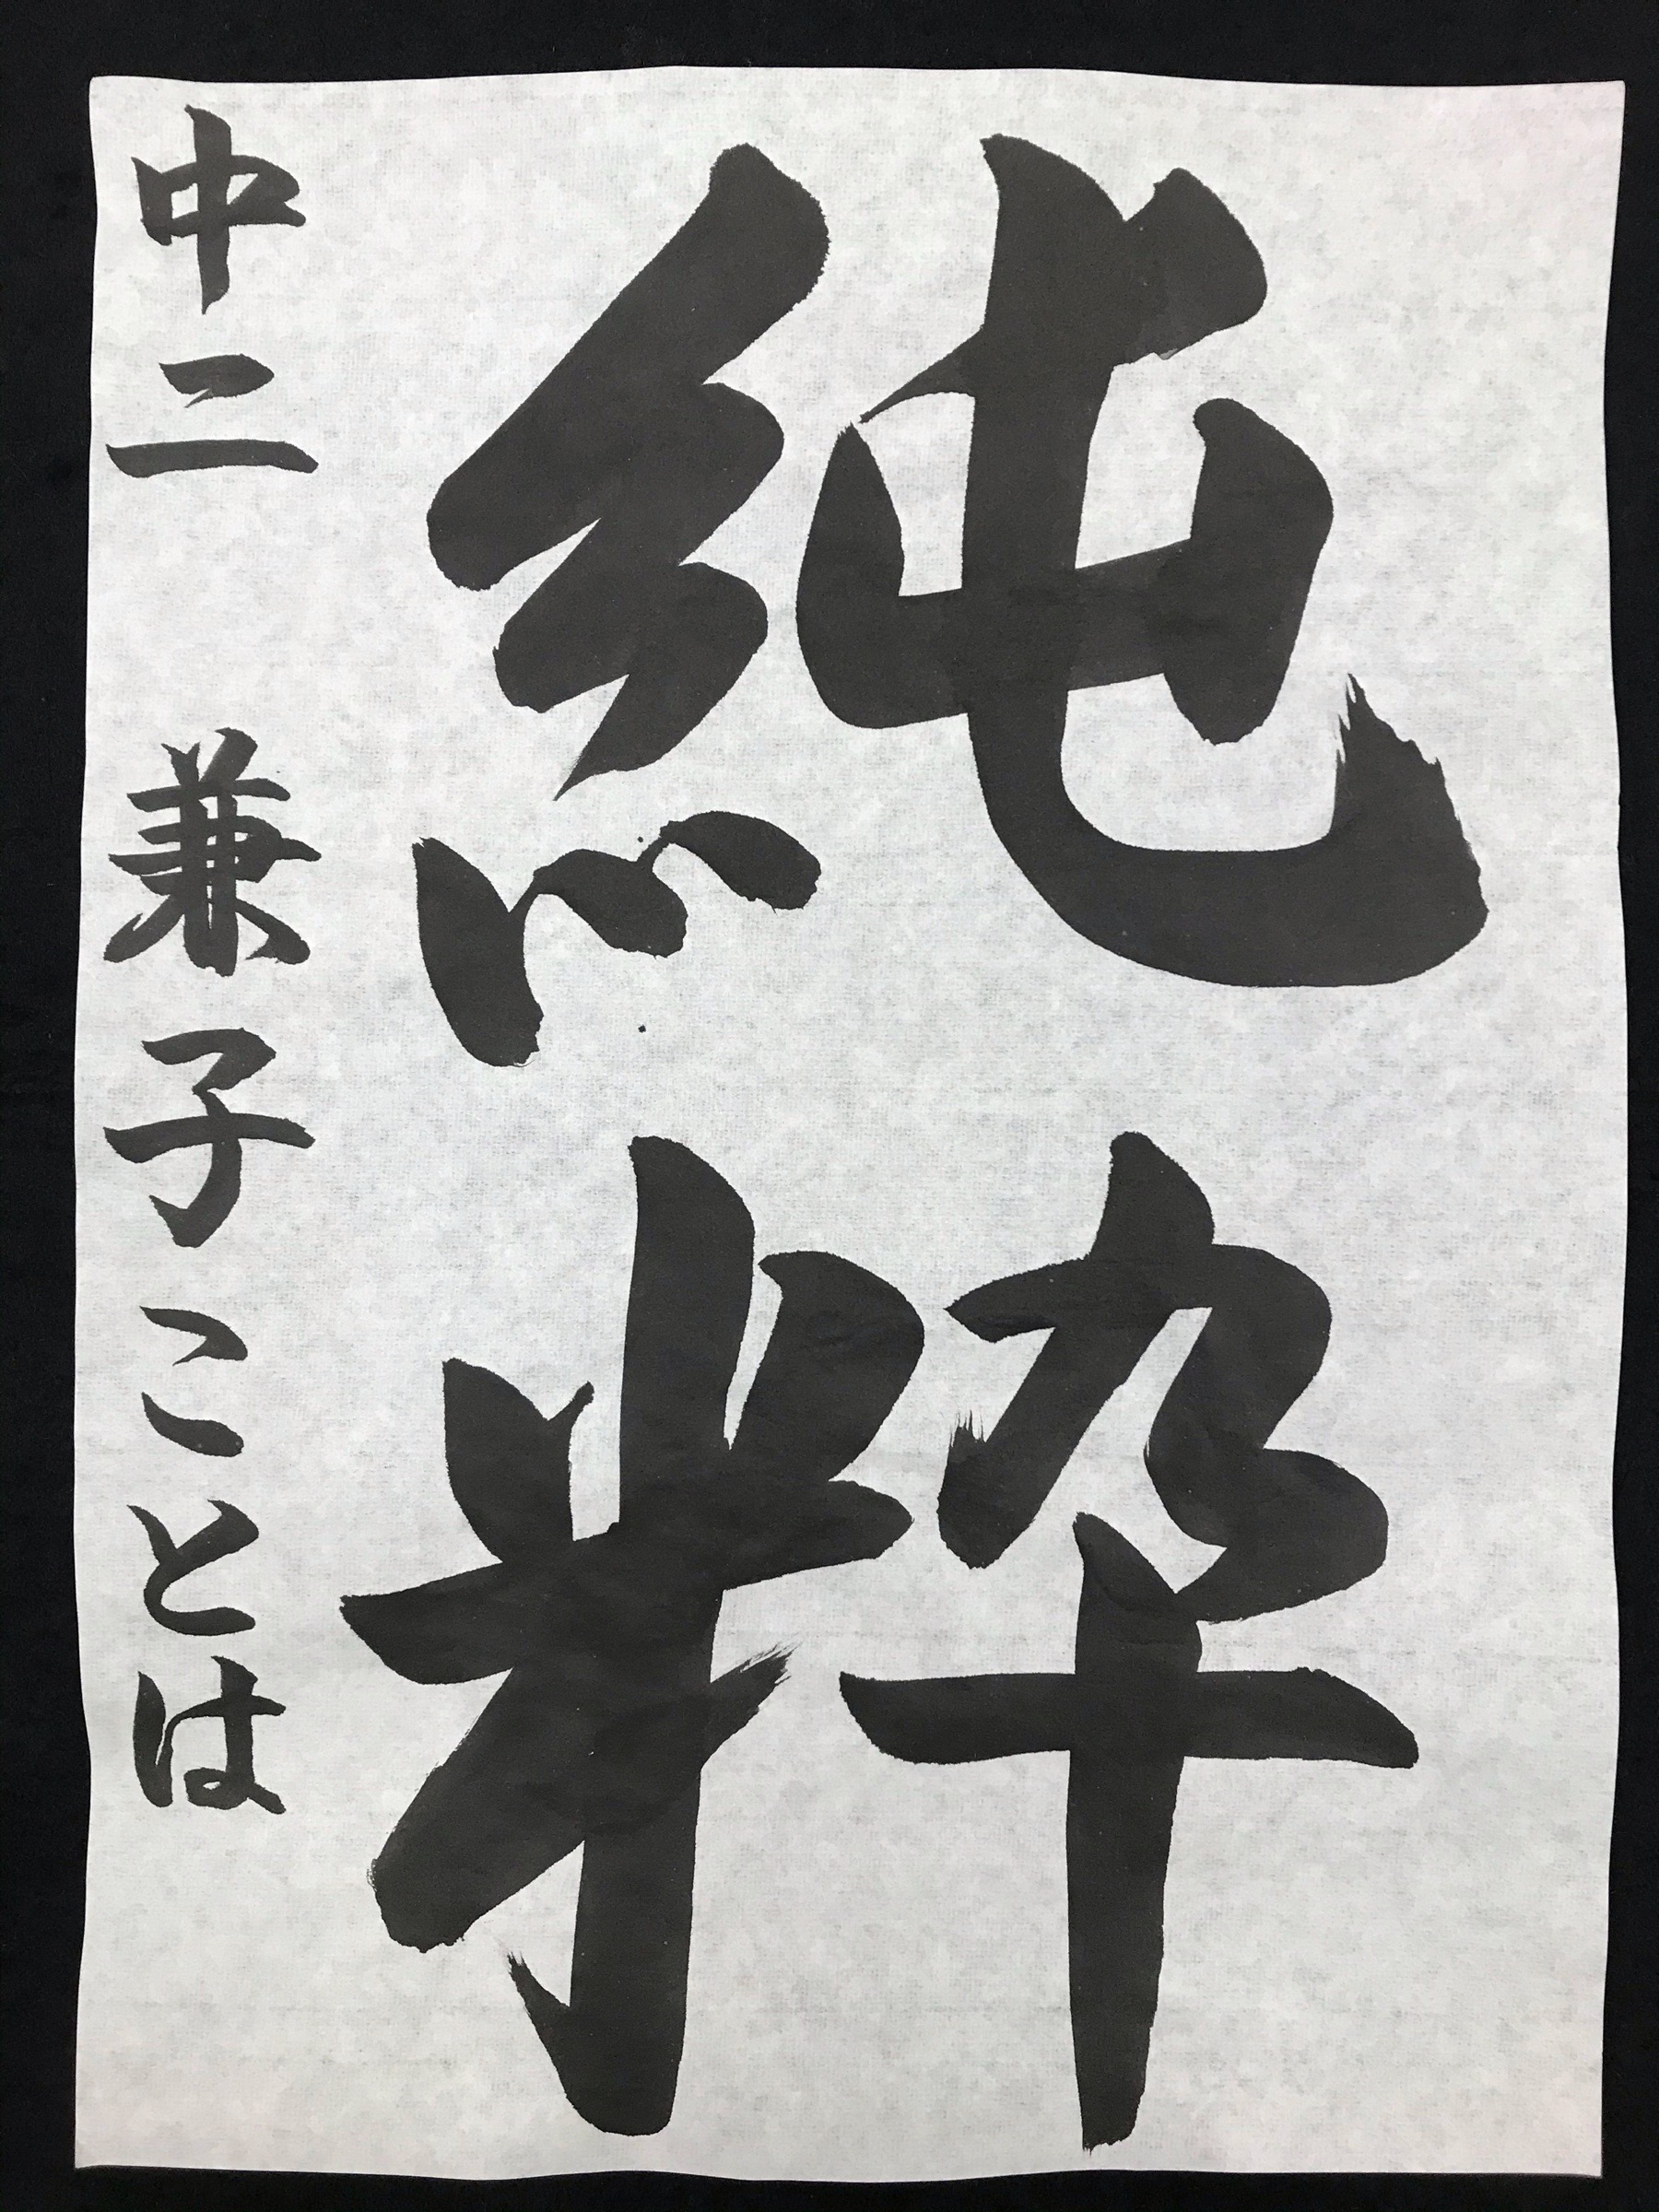 純粋
中二 兼子ことは